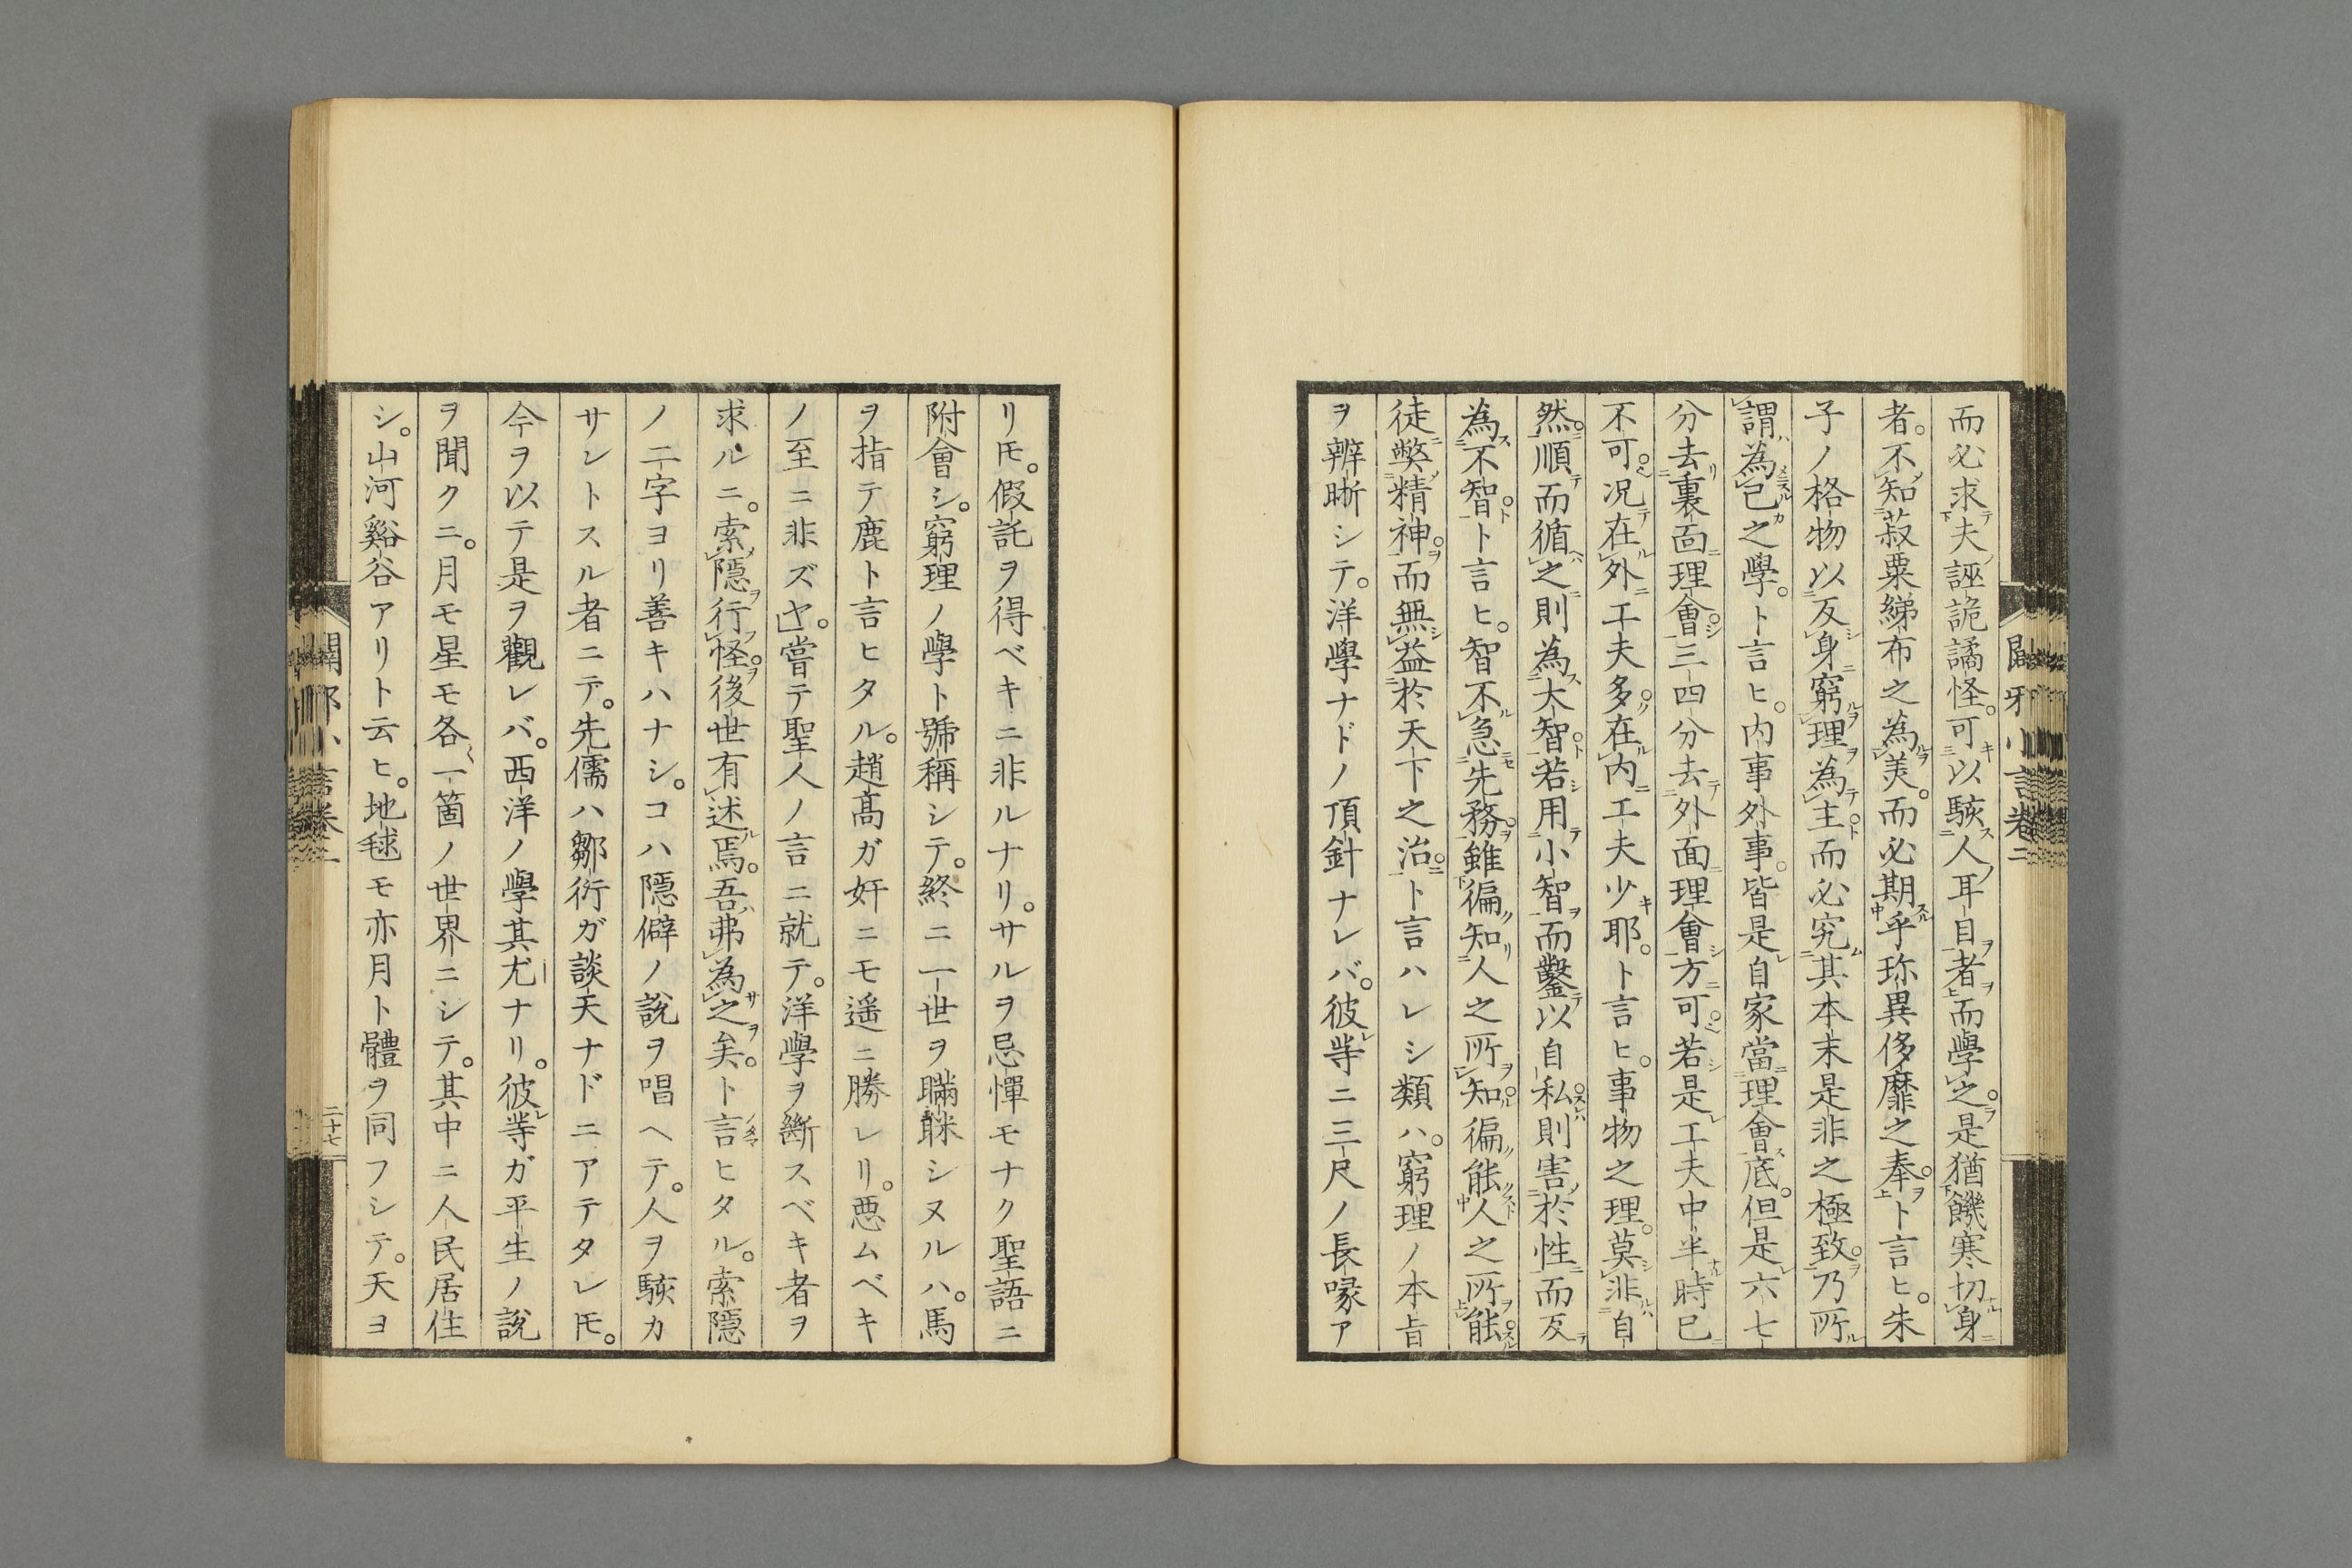 而必求夫誣詭譎怪。可以駭人耳目者而學之。是猶饑寒切身
者。不知菽粟綈布之為美。而必期乎珍異侈靡之奉。ト言ヒ。朱
子ノ格物以反身窮理為主。而必究其本末是非之極致。乃所
謂為己之學。ト言ヒ。内事外事。皆是自家當理會底。但是六七
分去裏面理會。三四分去外面理會方可。若是工夫中半時已
不可。况在外工夫多。在内工夫少耶。ト言ヒ。事物之理。莫非自
然。順而循之則為大智。若用小智而鑿以自私。則害於性而反
為不智。ト言ヒ。智不急先務。雖徧知人之所知。徧能人之所能。
徒弊精神。而無益於天下之治。ト言ハレシ類ハ。窮理ノ本旨
ヲ辨晣シテ。洋學ナドノ頂針ナレバ。彼等ニ三尺ノ長喙ア
闢邪小言卷二
リ𪜈。假託ヲ得ベキニ非ルナリ。サルヲ忌憚モナク聖語ニ
附會シ。窮理ノ學ト號稱シテ。終ニ一世ヲ瞞眯シヌルハ。馬
ヲ指テ鹿ト言ヒタル。趙髙ガ奸ニモ遥ニ勝レリ。悪ムベキ
ノ至ニ非ズヤ。嘗テ聖人ノ言ニ就テ。洋學ヲ斷スベキ者ヲ
求ルニ。索隱行怪。後世有述焉。吾弗為之矣。ト言ヒタル。索隱
ノ二字ヨリ善キハナシ。コハ隱僻ノ說ヲ唱ヘテ。人ヲ駭カ
サントスル者ニテ。先儒ハ鄒衍ガ談天ナドニアテタレ𪜈。
今ヲ以テ是ヲ觀レバ。西洋ノ學其尤ナリ。彼等ガ平生ノ說
ヲ聞クニ。月モ星モ各〻一箇ノ世界ニシテ。其中ニ人民居住
シ。山河谿谷アリト云ヒ。地毬モ亦月ト體ヲ同フシテ。天ヨ
闢邪小言卷二
二十七